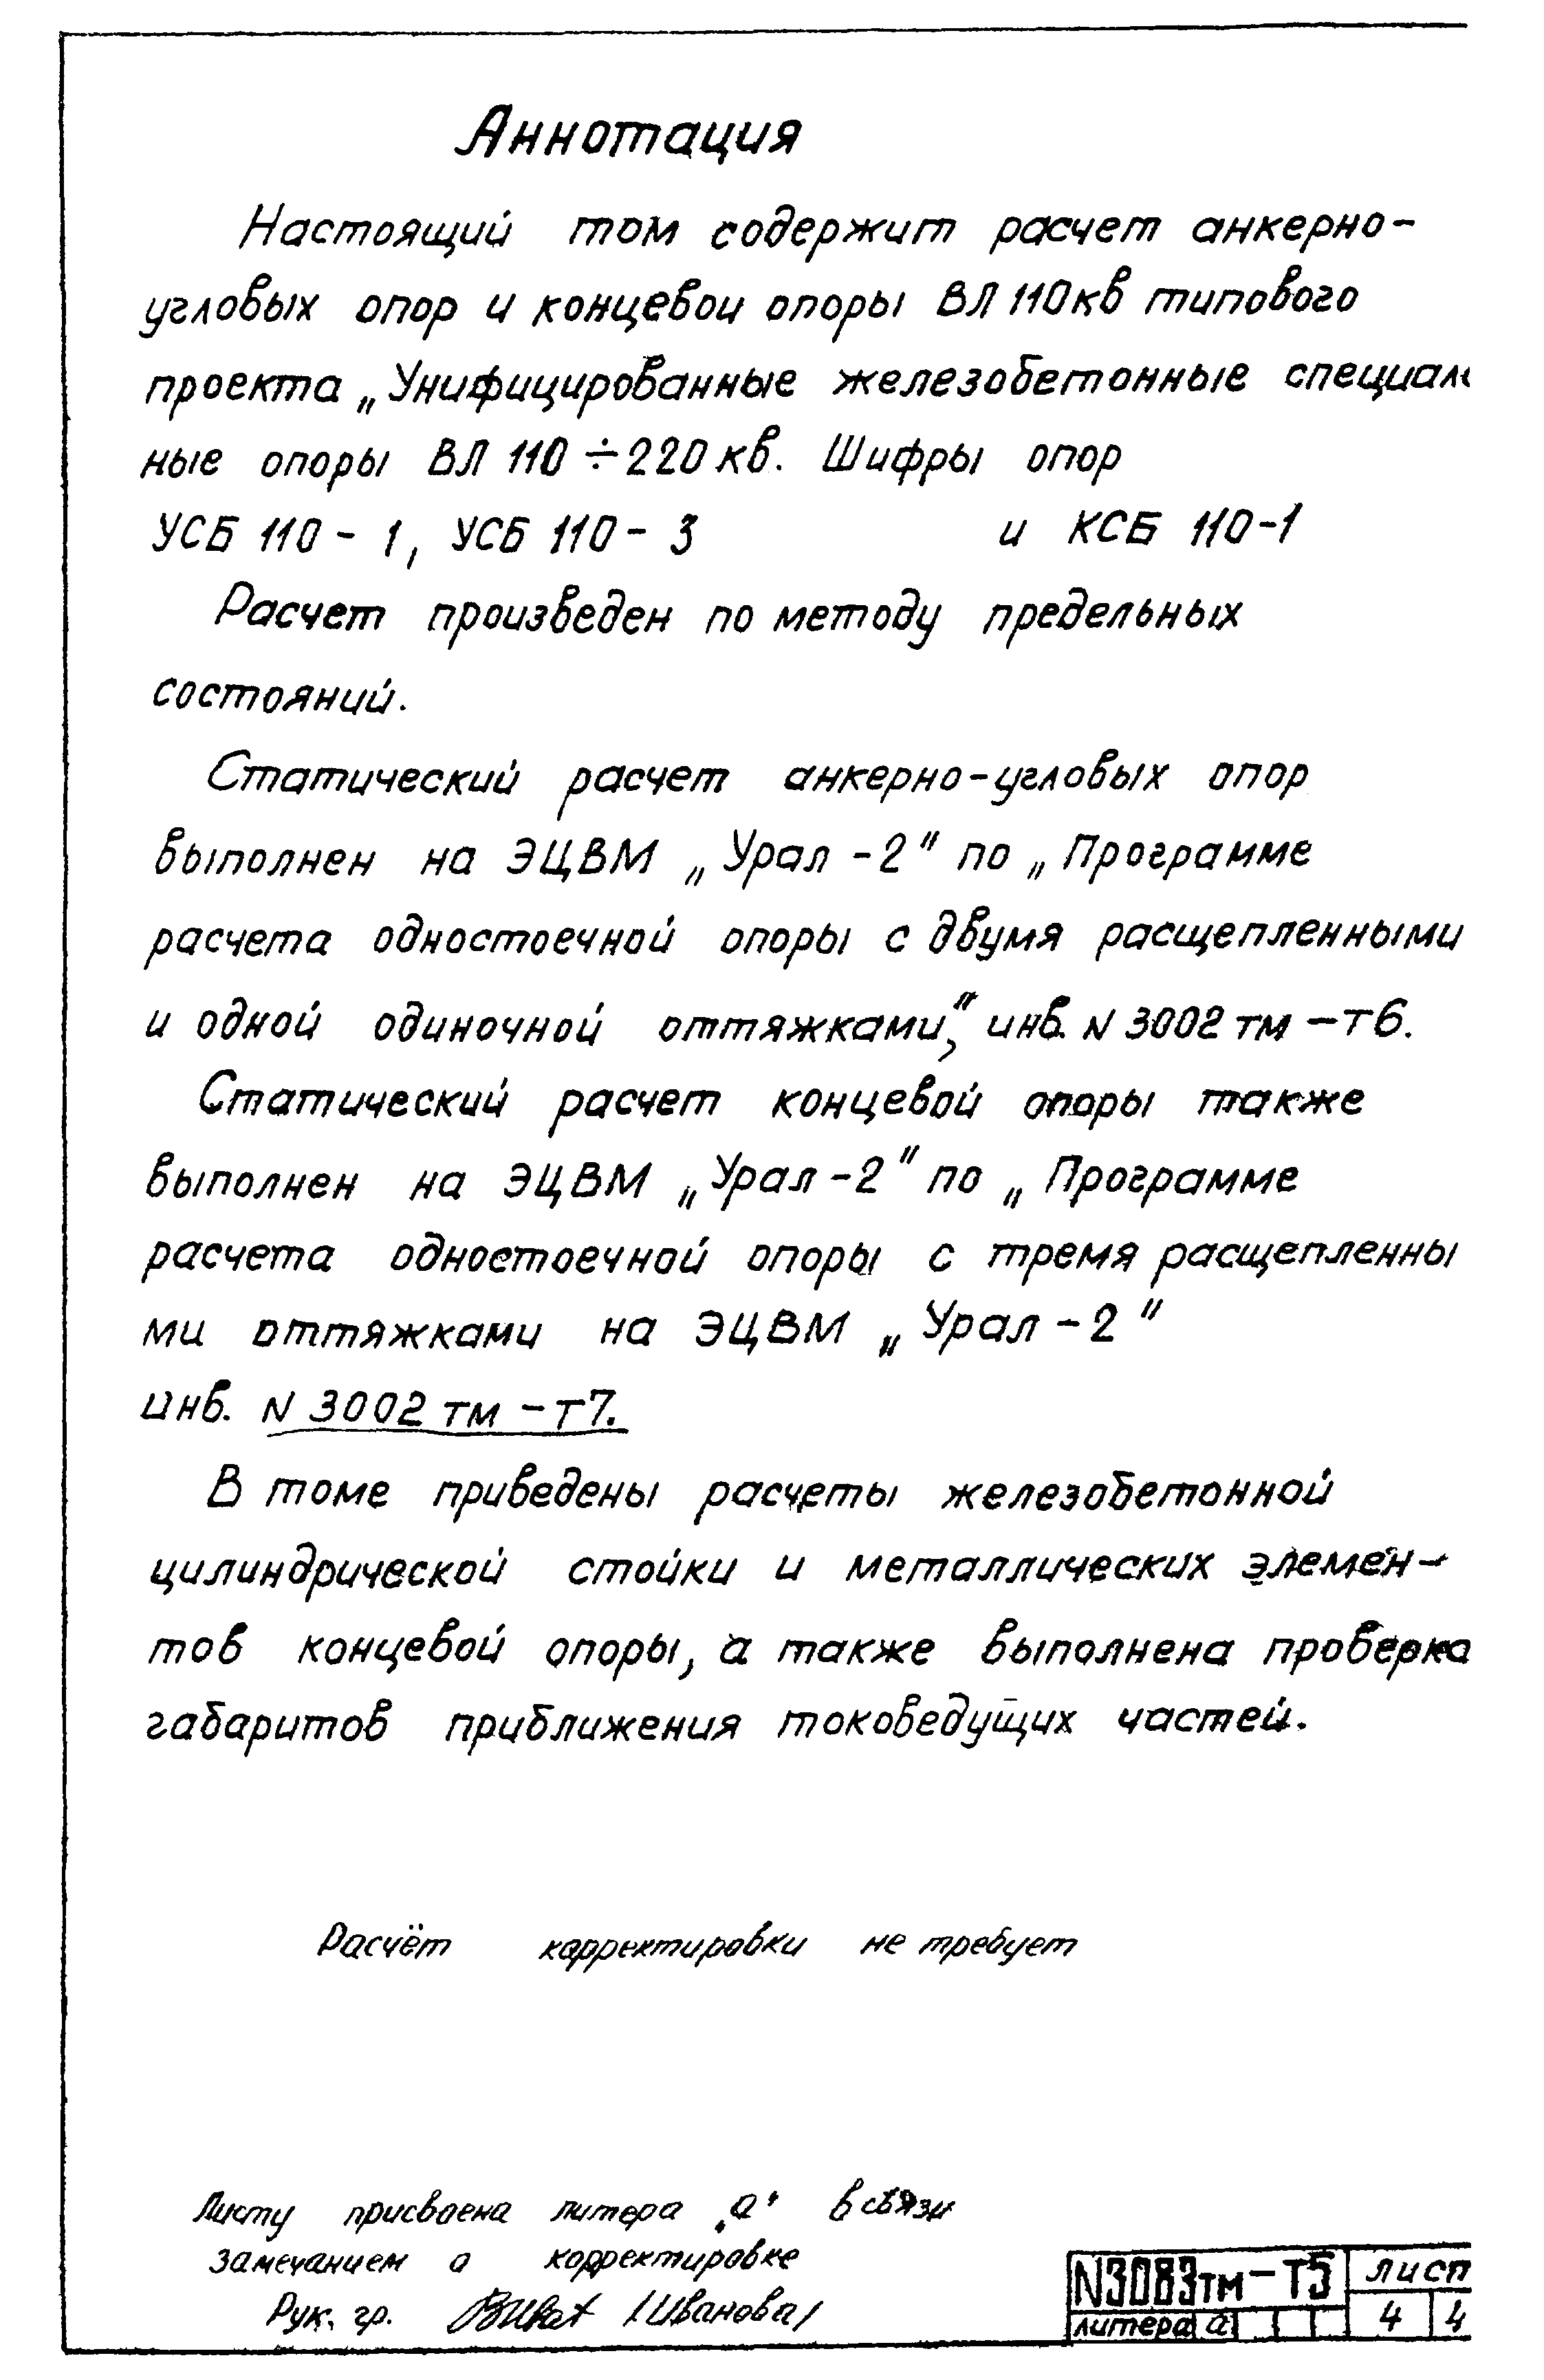 Аннотация
Настоящий том содержит расчет анкерно-
угловых опор и концевой опоры ВЛ 110кв типового
проекта „Унифицированные железобетонные специаль
ные опоры ВЛ 110÷220кв. Шифры опор
УСБ 110-1, УСБ 110-3 и КСБ 110-1
Расчет произведен по методу предельных
состояний.
Статический расчет анкерно-угловых опор
выполнен на ЭЦВМ „Урал-2" по „Программе
расчета одностоечной опоры с двумя расщепленными
и одной одиночной оттяжками," инв. N 3002тм-т6.
Статический расчет концевой опоры также
выполнен на ЭЦВМ „Урал-2" по „Программе
расчета одностоечной опоры с тремя расщепленны
ми оттяжками на ЭЦВМ „Урал-2"
инв. N 3002тм-т7.
В томе приведены расчеты железобетонной
цилиндрической стойки и металлических элемен-
тов концевой опоры, а также выполнена проверка
габаритов приближения токоведущих частей.
Расчёт корректировки не требует
Листу присвоена литера „а" в связи
замечанием о корректировке
Рук. гр. /Иванова/
N3083тм-Т5 лист
литера а 4 4